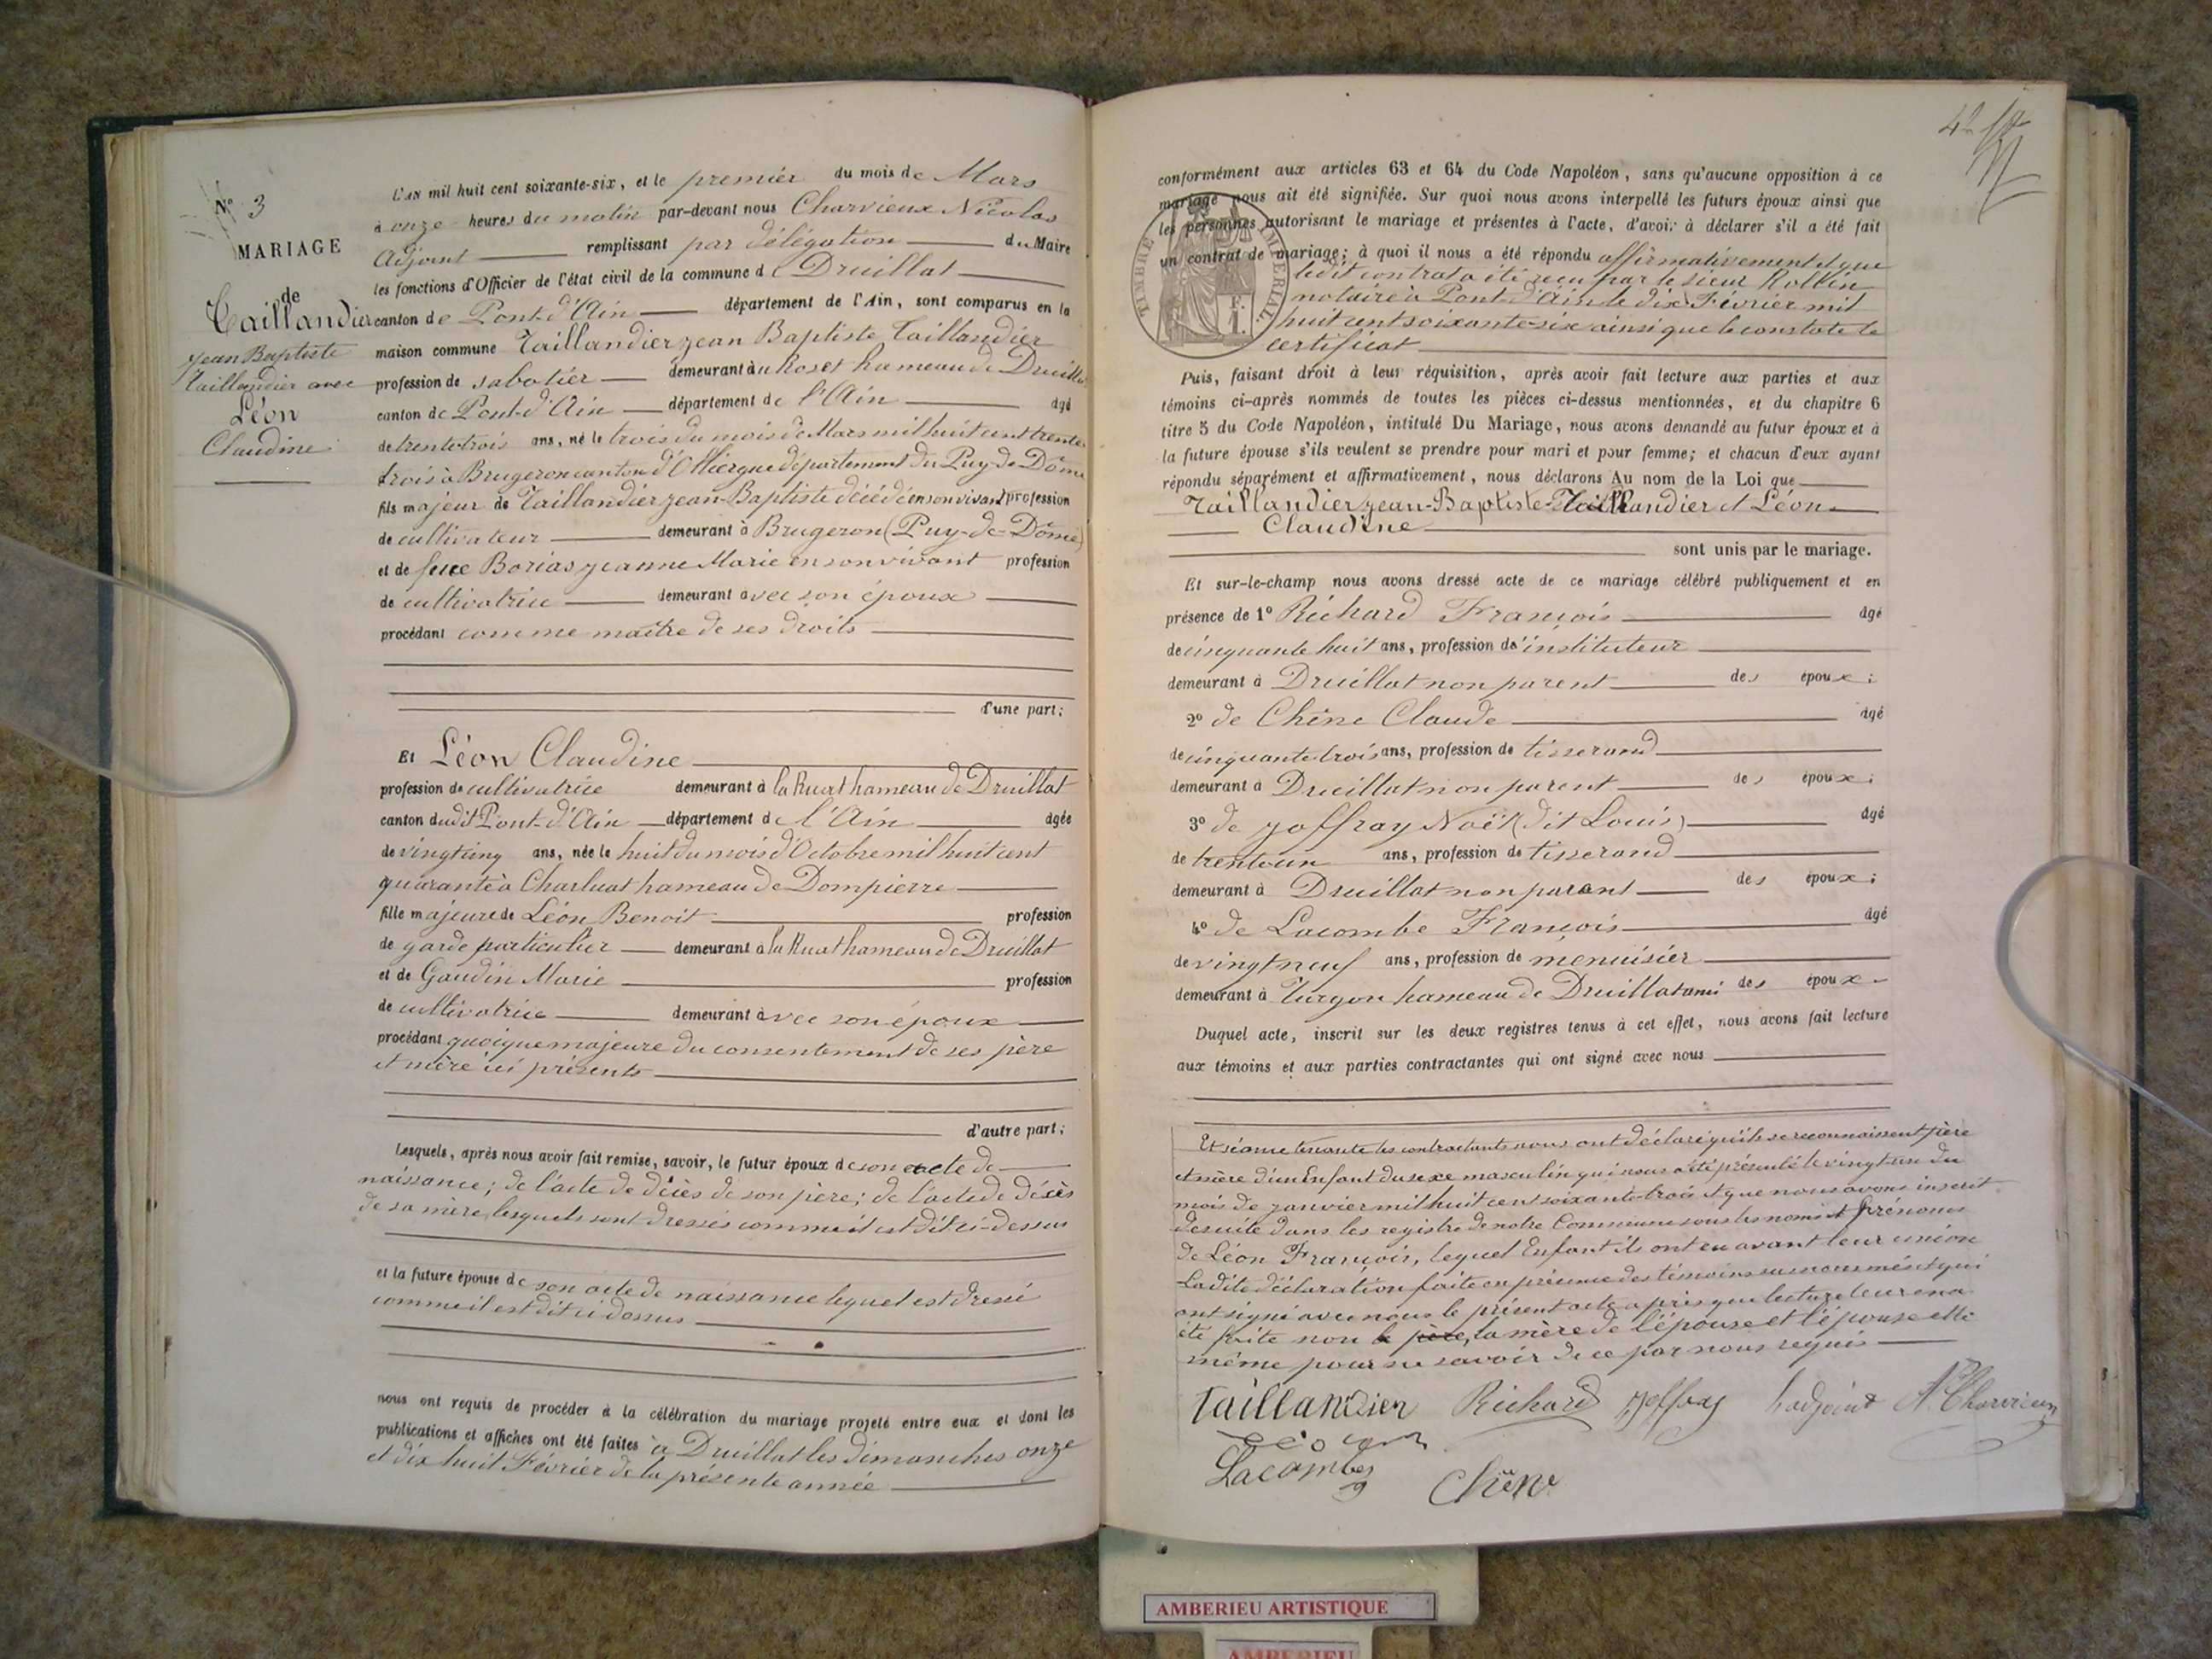 N° 3
MARIAGE
de
Taillandier
Jean Baptiste
Taillandier avec
Léon
Claudine
L'an mil huit cent soixante-six, et le premier du mois de Mars
à onze heures du matin par-devant nous Charvieux Nicolas
Adjoint remplissant par délégation du Maire
les fonctions d'Officier de l'état civil de la commune de Druillat
canton de Pont-d'Ain département de l'Ain, sont comparus en la
maison commune Taillandier Jean Baptiste Taillandier
profession de sabotier demeurant au Roset hameau de Druillat
canton de Pont-d'Ain département de l'Ain âgé
de trente-trois ans, né le trois du mois de Mars mil huit cent trente
trois à Brugeron canton d'Olliergue département du Puy-de-Dôme
fils majeur de Taillandier Jean-Baptiste décédé en son vivant profession
de cultivateur demeurant à Brugeron (Puy-de-Dôme)
et de feue Borias Jeanne Marie en son vivant profession
de cultivatrice demeurant avec son époux
procédant comme maître de ses droits
d'une part;
Et Léon Claudine
profession de cultivatrice demeurant à la Ruat hameau de Druillat
canton dudit Pont-d'Ain département de l'Ain âgée
de vingt cinq ans, née le huit du mois d'Octobre mil huit cent
quarante à Charluat hameau de Dompierre
fille majeure de Léon Benoit profession
de garde particulier demeurant à la Ruat hameau de Druillat
et de Gaudin Marie profession
de cultivatrice demeurant avec son époux
procédant quoique majeure du consentement de ses père
et mère ici présents
d'autre part;
Lesquels, après nous avoir fait remise, savoir, le futur époux de son acte de
naissance; de l'acte de décès de son père; de l'acte de décès
de sa mère, lesquels sont dressés comme il est dit ci-dessus
et la future épouse de son acte de naissance lequel est dressé
comme il est dit ci dessus
nous ont requis de procéder à la célébration du mariage projeté entre eux et dont les
publications et affiches ont été faites à Druillat les dimanches onze
et dix huit Février de la présente année
conformément aux articles 63 et 64 du Code Napoléon, sans qu'aucune opposition à ce
mariage nous ait été signifiée. Sur quoi nous avons interpellé les futurs époux ainsi que
les personnes autorisant le mariage et présentes à l'acte, d'avoir à déclarer s'il a été fait
un contrat de mariage; à quoi il nous a été répondu affirmativement et que
ledit contrat a été reçu par le sieur Rollin
notaire à Pont-d'Ain le dix Février mil
huit cent soixante-six ainsi que le constate le
certificat
TIMBRE IMPERIAL
Puis, faisant droit à leur réquisition, après avoir fait lecture aux parties et aux
témoins ci-après nommés de toutes les pièces ci-dessus mentionnées, et du chapitre 6
titre 5 du Code Napoléon, intitulé Du Mariage, nous avons demandé au futur époux et à
la future épouse s'ils veulent se prendre pour mari et pour femme; et chacun d'eux ayant
répondu séparément et affirmativement, nous déclarons Au nom de la Loi que
Taillandier Jean-Baptiste-Taillandier et Léon
Claudine
sont unis par le mariage.
Et sur-le-champ nous avons dressé acte de ce mariage célébré publiquement et en
présence de 1° Richard François âgé
de cinquante huit ans, profession d'instituteur
demeurant à Druillat non parent des époux;
2° de Chêne Claude âgé
de cinquante trois ans, profession de tisserand
demeurant à Druillat non parent des époux;
3° de Joffray Noël (dit Louis) âgé
de trente un ans, profession de tisserand
demeurant à Druillat non parent des époux;
4° de Lacombe François âgé
de vingt neuf ans, profession de menuisier
demeurant à Turgon hameau de Druillat ami des époux
Duquel acte, inscrit sur les deux registres tenus à cet effet, nous avons fait lecture
aux témoins et aux parties contractantes qui ont signé avec nous
Et séance tenante les contractants nous ont déclaré qu'ils se reconnaissent père
et mère d'un Enfant du sexe masculin qui nous a été présenté le vingt-un du
mois de janvier mil huit cent soixante-trois et que nous avons inscrit
desuite dans les registre de notre Commune sous les noms et prénoms
de Léon François, lequel Enfant ils ont eu avant leur union
Ladite déclaration faite en présence des témoins susnommés et qui
ont signé avec nous le présent acte après que lecture leur en a
été faite non le père, la mère de l'épouse et l'épouse elle
même pour ne savoir de ce par nous requis
Taillandier Richard Joffray L'adjoint N. Charvieux
Léon
Lacombe Chêne
AMBERIEU ARTISTIQUE
AMBERIEU